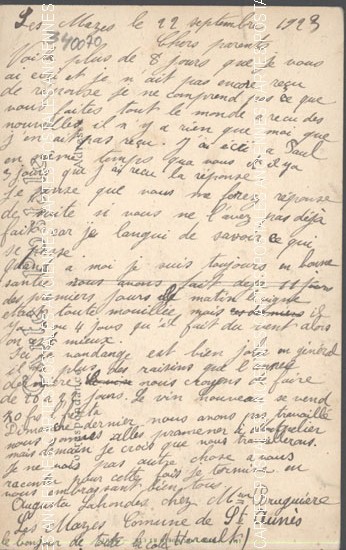 Les Mazes le 22 septembre 1923
40070
Chers parents
Voila plus de 8 jours que je vous
ai ecri et je n'ait pas encore reçu
de reponse je ne comprend pas ce que
vous faites tout le monde a recu des
nouvelles il n'y a rien que moi que
j'en ait pas reçu. J'ai ecri a Paul
en meme temps qua vous il y a
2 jours que j'ai recu la reponse
Je pense que vous me ferez reponse
de suite si vous ne l'avez pas déja
fait car je langui de savoir ce que
se passe
Quand a moi je suis toujours en bonne
santé nous avons fait des 11 jours
des premiers jours le matin la vigne
etait toute mouillée mais il
y a 3 ou 4 jours qu'il fait du vent alors
on est mieux.
Ici la vandange est bien jolie en général
il y a plus des raisins que l'année
dernière nous croyons de faire
de 20 a 25 jours. Le vin nouveau se vend
Dimanche dernier, nous avons pas travaillé
nous sommes alles pramener a Montpelier
mais demain je crois que nous travallerons.
Je ne vois pas autre chose a vous
raconter pour cette fois je termine en
vous embrassant bien tous
Augusta Lahondes chez Mr Bruguiere
Les Mazes Comune de St Aunès
le bonjour de toute la cole Herault